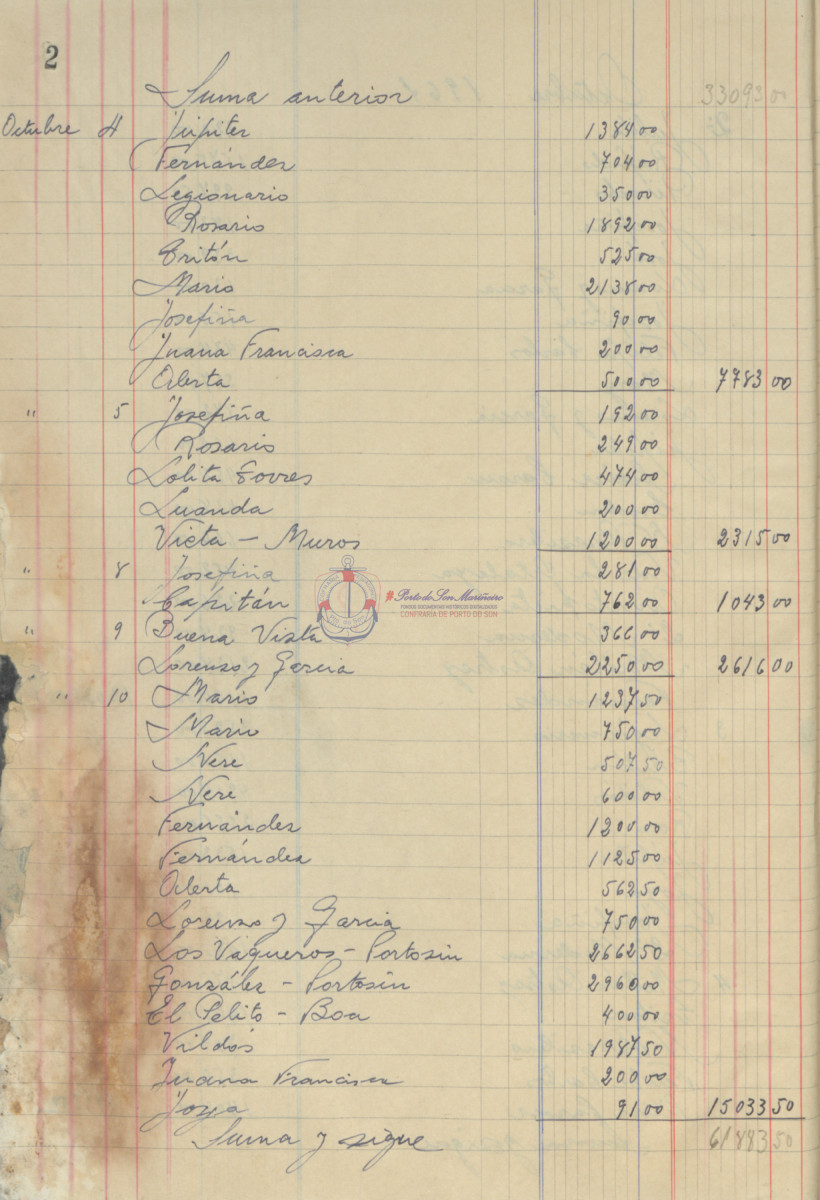 2
Suma anterior 33093 00
Octubre 4 Júpiter 1384 00
Fernández 704 00
Legionario 350 00
Rosario 1892 00
Tritón 525 00
Mario 2138 00
Josefiña 90 00
Juana Francisca 200 00
Alerta 500 00 7783 00
" 5 Josefiña 192 00
Rosario 249 00
Lolita Torres 474 00
Luanda 200 00
Vieta - Muros 1200 00 2315 00
" 8 Josefiña 281 00
Capitán 762 00 1043 00
#Porto do Son Mariñeiro
FONDOS DOCUMENTAIS HISTÓRICOS DIXITALIZADOS
CONFRARIA DE PORTO DO SON
" 9 Buena Vista 366 00
Lorenzo y Garcia 2250 00 2616 00
" 10 Mario 1237 50
Mario 750 00
Nere 507 50
Nere 600 00
Fernández 1200 00
Fernández 1125 00
Alerta 562 50
Lorenzo y Garcia 750 00
Los Vaqueros - Portosin 2662 50
González - Portosin 2960 00
El Pelito - Boa 400 00
Vildós 1987 50
Juana Francisca 200 00
Joya 91 00 15033 50
Suma y sigue 61883 50